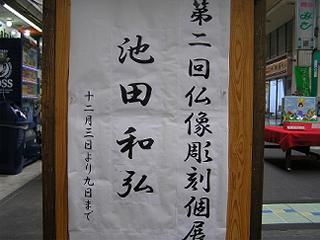 第二回仏像彫刻個展
池田和弘
十二月三日より九日まで